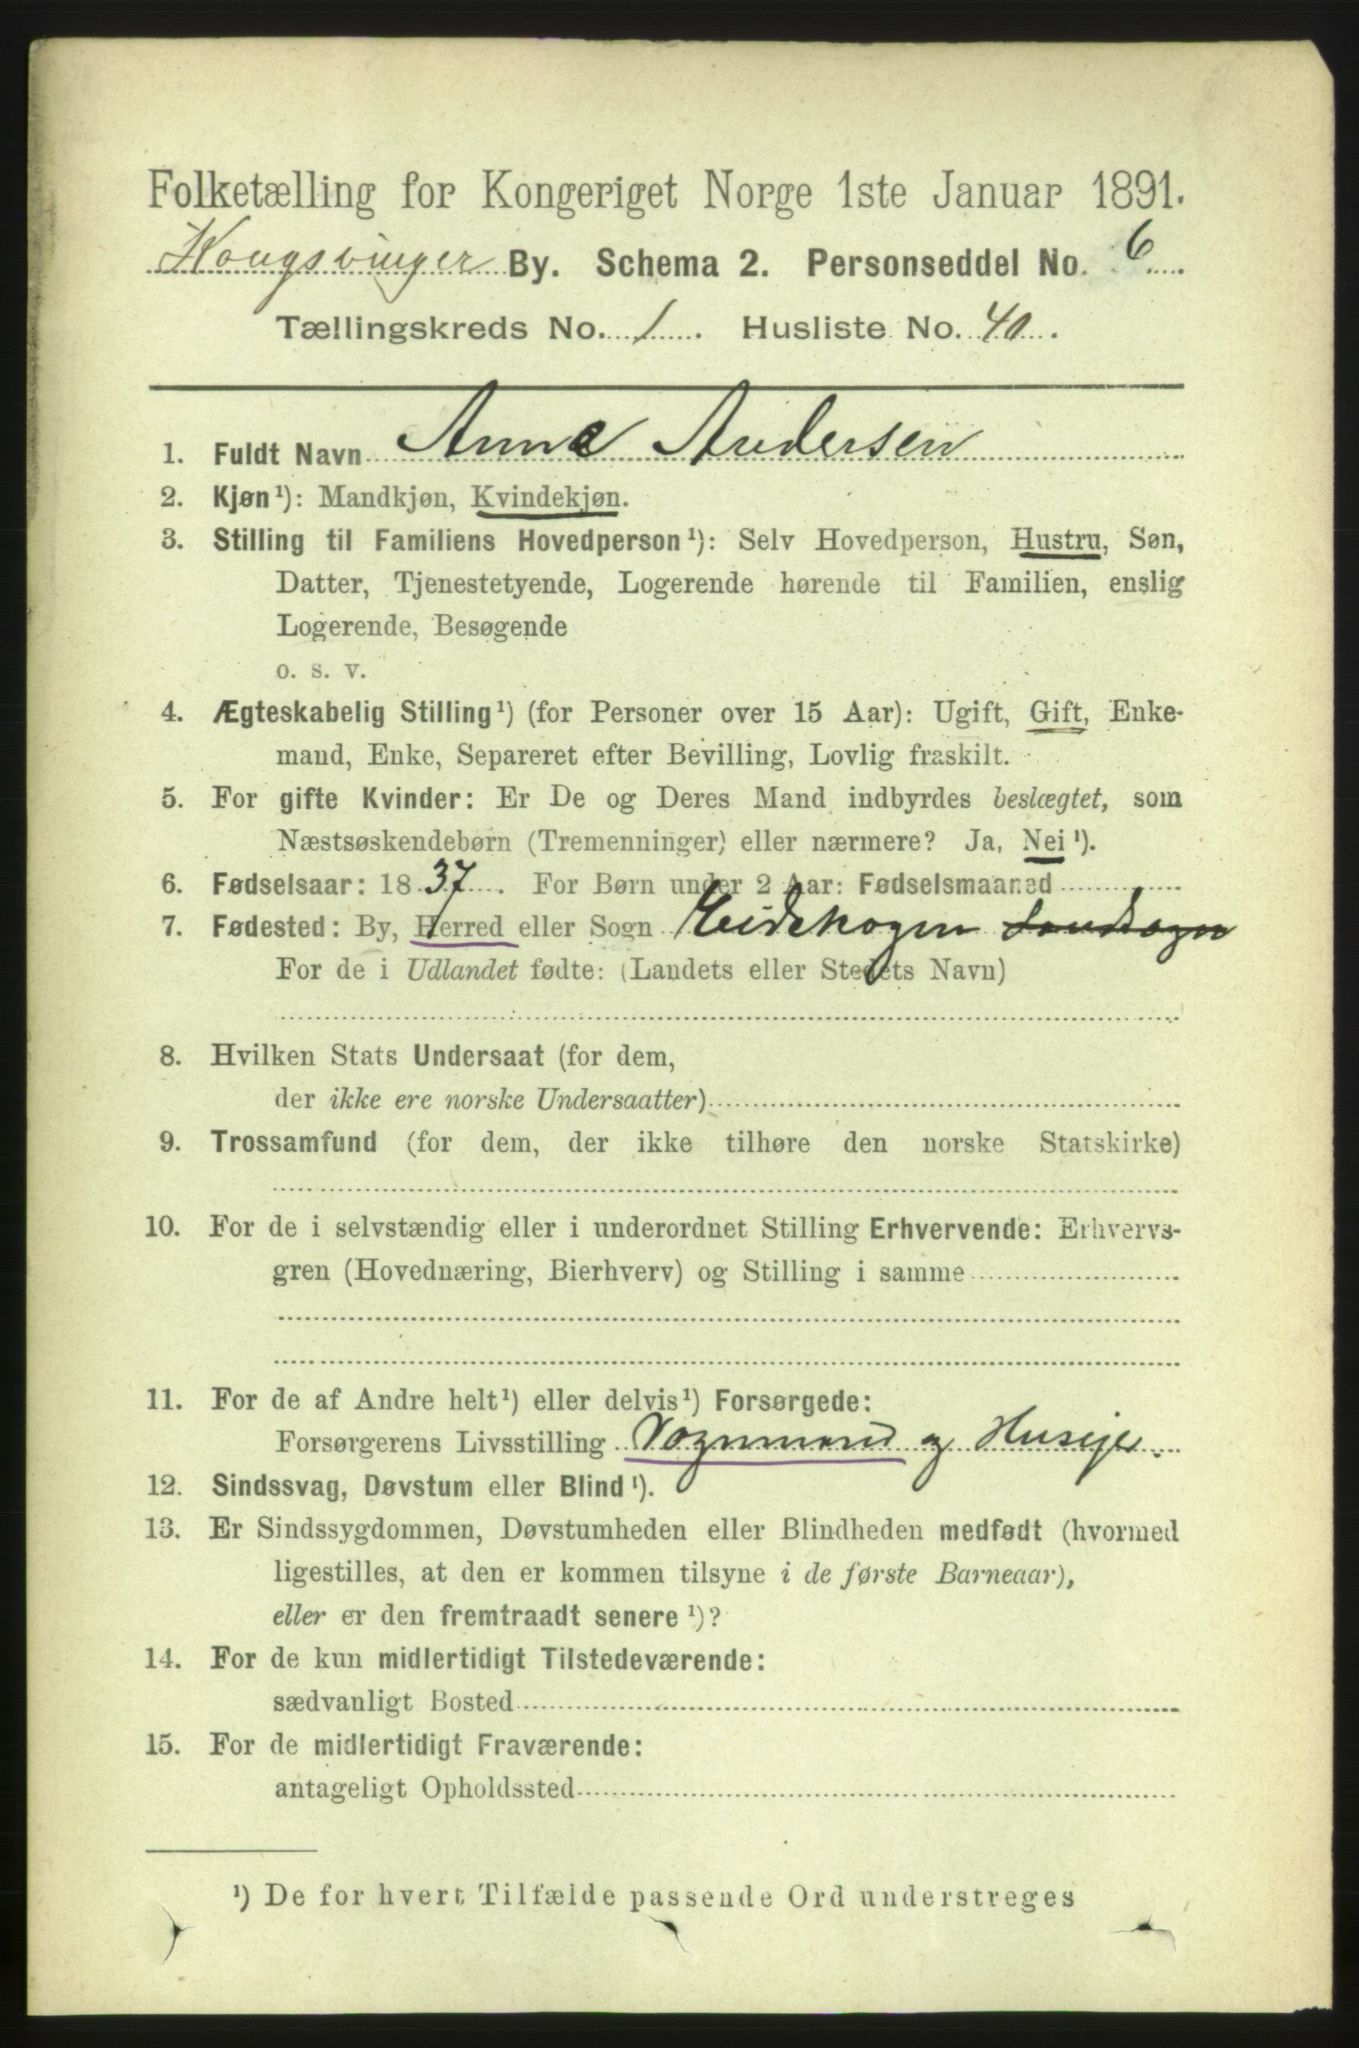 Folketælling for Kongeriget Norge 1ste Januar 1891.
Kongsvinger By. Schema 2. Personseddel No. 6
Tællingskreds No. 1. Husliste No. 40.
1. Fuldt Navn Anne Andersen
2. Kjøn¹): Mandkjøn, Kvindekjøn.
3. Stilling til Familiens Hovedperson¹): Selv Hovedperson, Hustru, Søn,
Datter, Tjenestetyende, Logerende hørende til Familien, enslig
Logerende, Besøgende
o. s. v.
4. Ægteskabelig Stilling¹) (for Personer over 15 Aar): Ugift, Gift, Enke-
mand, Enke, Separeret efter Bevilling, Lovlig fraskilt.
5. For gifte Kvinder: Er De og Deres Mand indbyrdes beslægtet, som
Næstsøskendebørn (Tremenninger) eller nærmere? Ja, Nei¹).
6. Fødselsaar: 1837. For Børn under 2 Aar: Fødselsmaaned
7. Fødested: By, Herred eller Sogn Eidskogen
For de i Udlandet fødte: (Landets eller Stedets Navn)
8. Hvilken Stats Undersaat (for dem,
der ikke ere norske Undersaatter)
9. Trossamfund (for dem, der ikke tilhøre den norske Statskirke)
10. For de i selvstændig eller i underordnet Stilling Erhvervende: Erhvervs-
gren (Hovednæring, Bierhverv) og Stilling i samme
11. For de af Andre helt¹) eller delvis¹) Forsørgede:
Forsørgerens Livsstilling Vognmand og Huseje.
12. Sindssvag, Døvstum eller Blind¹).
13. Er Sindssygdommen, Døvstumheden eller Blindheden medfødt (hvormed
ligestilles, at den er kommen tilsyne i de første Barneaar),
eller er den fremtraadt senere¹)?
14. For de kun midlertidigt Tilstedeværende:
sædvanligt Bosted
15. For de midlertidigt Fraværende:
antageligt Opholdssted
¹) De for hvert Tilfælde passende Ord understreges